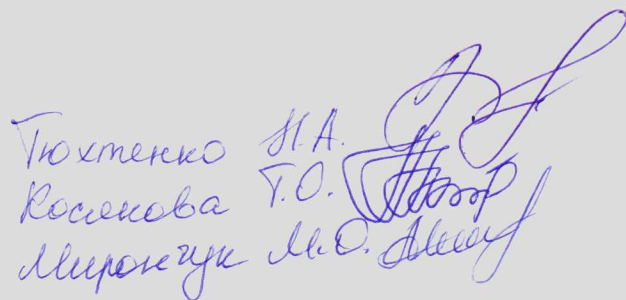 Тюхтенко Н.А.
Косякова Т.О.
Мирончук М.О.